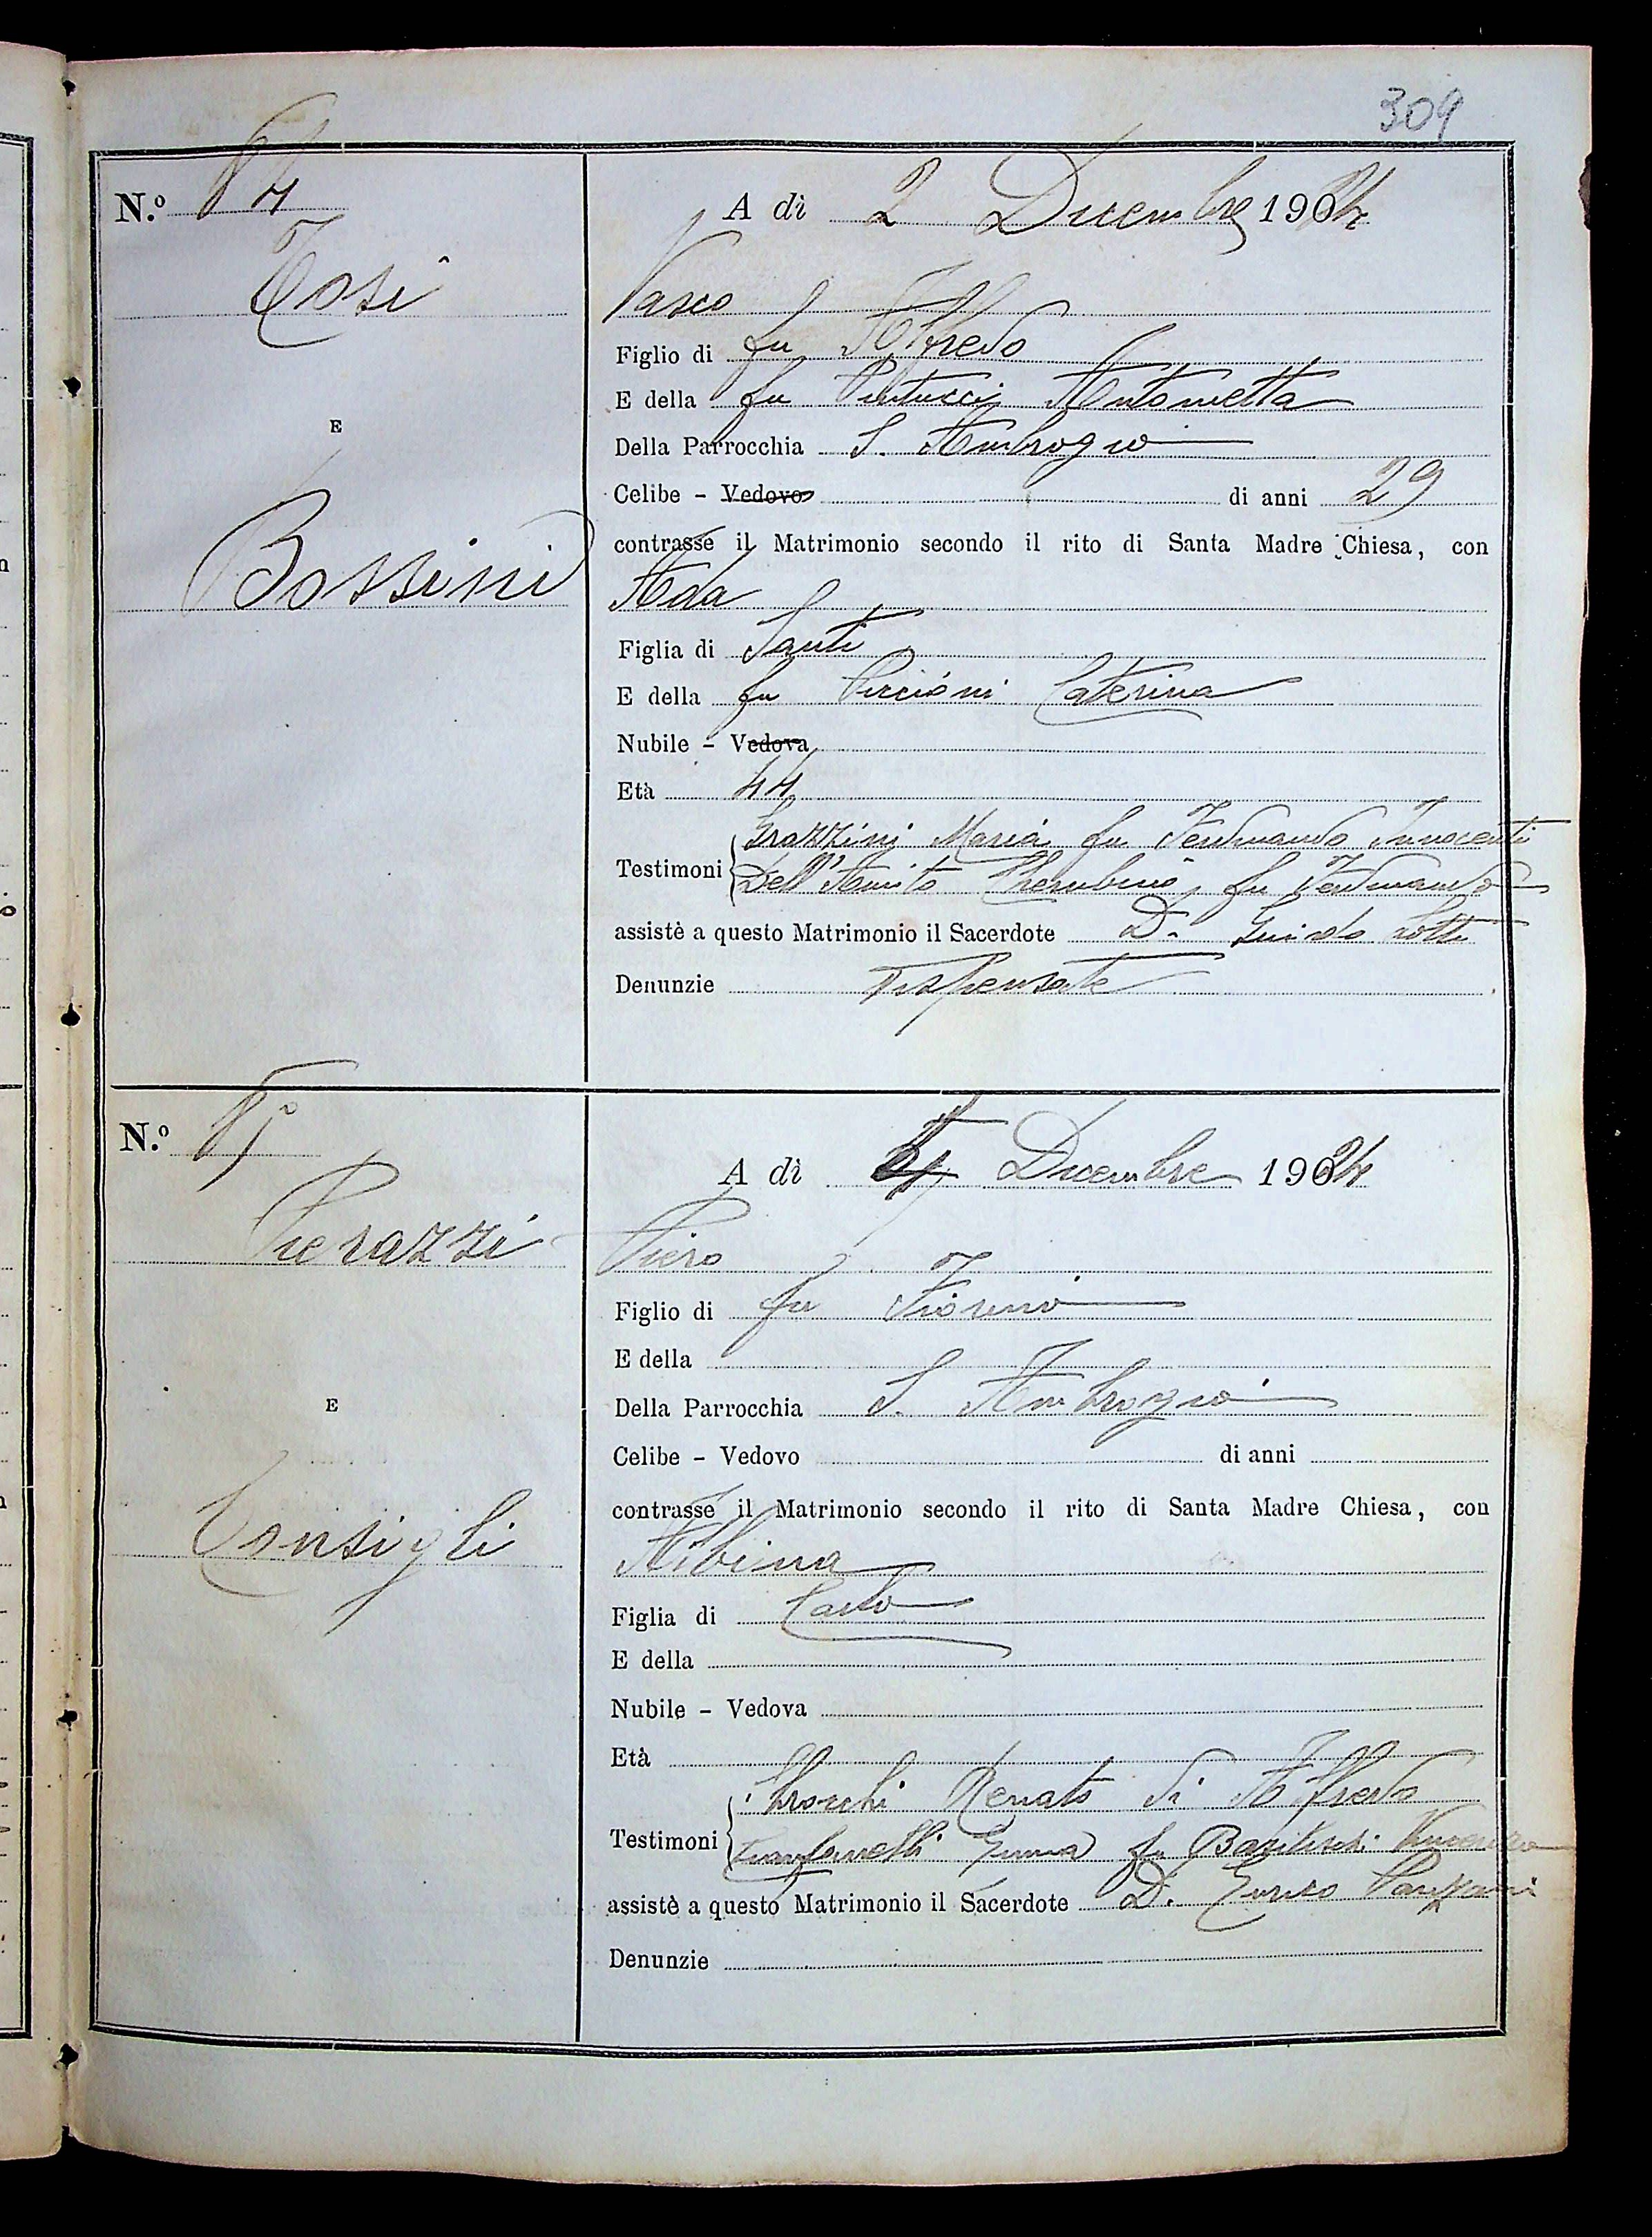 309
N.º 84
A dì 2 Dicembre 1924
Tosi
Vasco
Figlio di fu Alfredo
E della fu Antonietta
E
Della Parrocchia S. Ambrogio
Celibe - Vedovo di anni 29
contrasse il Matrimonio secondo il rito di Santa Madre Chiesa, con
Bossini
Ada
Figlia di Santi
E della fu Piccioni Caterina
Nubile - Vedova
Età 44
Testimoni
Grazzini Maria fu Ferdinando Innocenti
Dell'Amico Cherubino, fu Ferdinando
assistè a questo Matrimonio il Sacerdote D. Guido Lotti
Denunzie Dispensate
N.º 85
A dì Dicembre 1924
Pierazzi
Piero
Figlio di fu
E della
E
Della Parrocchia S. Ambrogio
Celibe - Vedovo di anni
contrasse il Matrimonio secondo il rito di Santa Madre Chiesa, con
Consigli
Albina
Figlia di Carlo
E della
Nubile - Vedova
Età
Testimoni
Renato di Alfredo
Emma fu
assistè a questo Matrimonio il Sacerdote D.
Denunzie